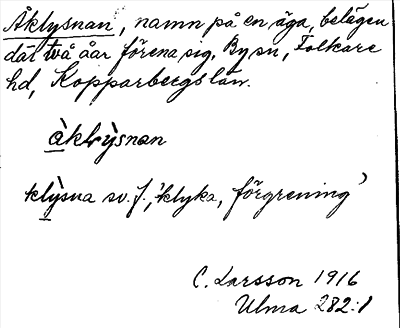 Åklysnan, namn på en äga, belägen
där två åar förena sig. By sn, Folkare
hd, Kopparbergs län.
àklỳsnan
klỳsna sv. f., 'klyka, förgrening'
C. Larsson 1916
Ulma 282:1